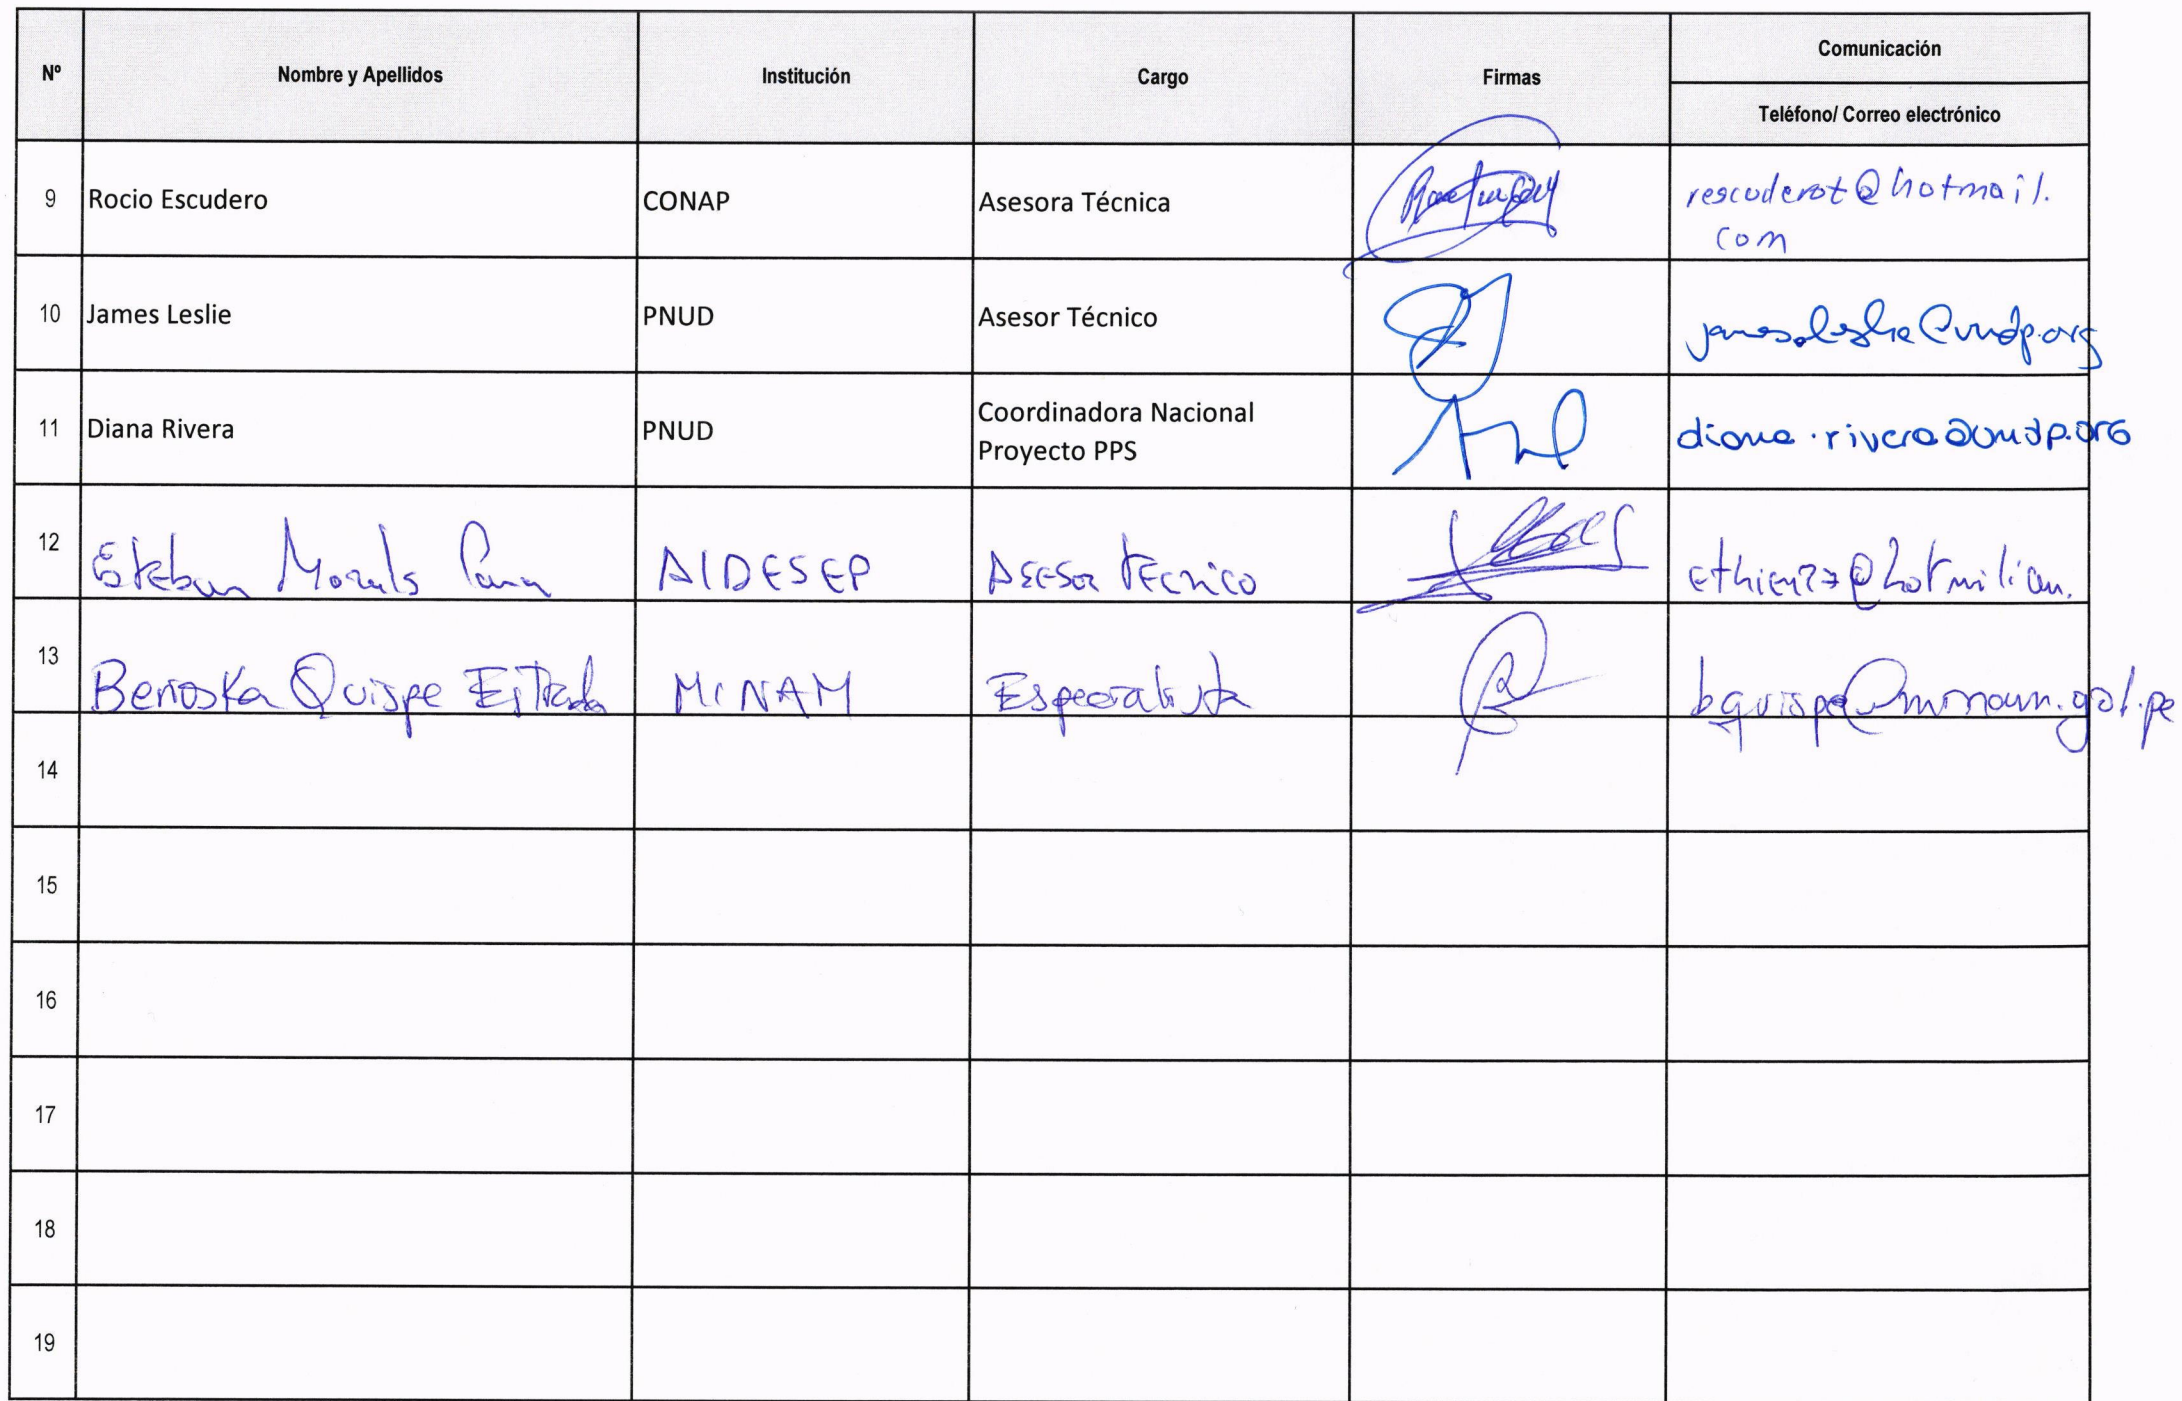 Nº Nombre y Apellidos Institución Cargo Firmas Comunicación
Teléfono/ Correo electrónico
9 Rocio Escudero CONAP Asesora Técnica rescuderot@hotmail.
com
10 James Leslie PNUD Asesor Técnico james.leslie@undp.org
11 Diana Rivera PNUD Coordinadora Nacional
Proyecto PPS diana.rivera@undp.org
12 Esteban Morales AIDESEP Asesor Técnico
13 Berioska Quispe Estrada MINAM Especialista bquispe@minam.gob.pe
14
15
16
17
18
19